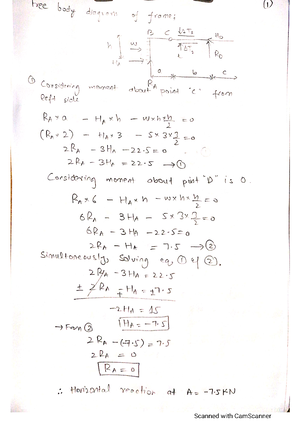 Free body diagram of frame;
(1)
B C
h
w
RA
a b c
① Considering moment about point "c" from
left side
RA×a - HA×h - w×h×h/2 = 0
(RA×2) - HA×3 - 5×3×3/2 = 0
2RA - 3HA - 22.5 = 0
2RA - 3HA = 22.5 → ①
Considering moment about point "D" is 0.
RA×6 - HA×h - w×h×h/2 = 0
6RA - 3HA - 5×3×3/2 = 0
6RA - 3HA - 22.5 = 0
2RA - HA = 7.5 → ②
Simultaneously, Solving eq ① & ②.
2RA - 3HA = 22.5
± 2RA ∓ HA = ±7.5
-2HA = 15
HA = -7.5
→ From ②
2RA - (-7.5) = 7.5
2RA = 0
RA = 0
∴ Horizontal reaction at A = -7.5KN
Scanned with CamScanner